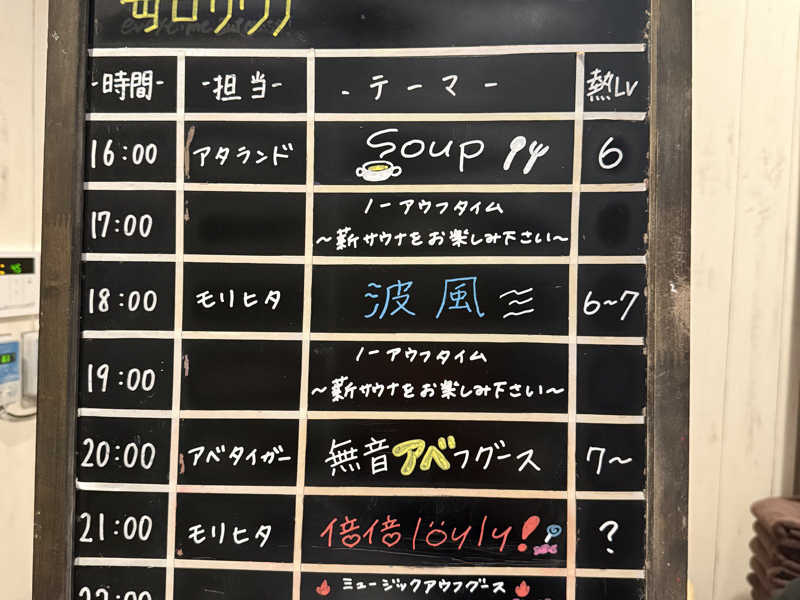 -時間- -担当- -テーマ- 熱Lv
16:00 アタランド Soup 6
17:00 ノーアウフタイム
~薪サウナをお楽しみ下さい~
18:00 モリヒタ 波風 6~7
19:00 ノーアウフタイム
~薪サウナをお楽しみ下さい~
20:00 アベタイガー 無音アベフグース 7~
21:00 モリヒタ 倍倍löyly! ?
ミュージックアウフグース